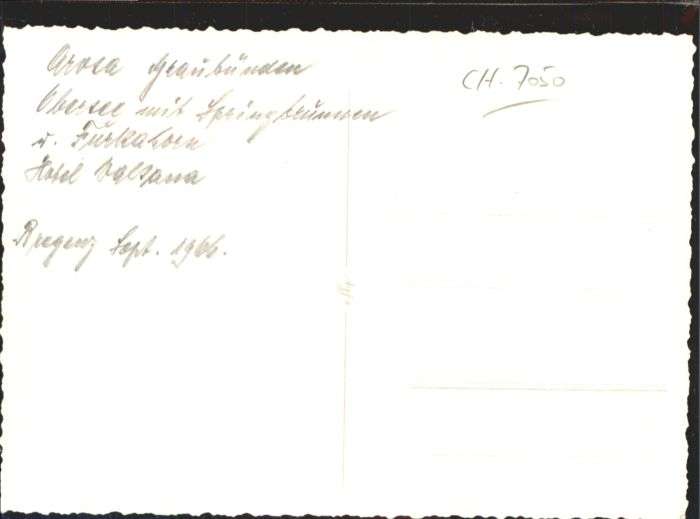 Arosa Graubünden
Obersee mit Springbrunnen
u. Furkahorn
Hotel Valsana
Bregenz Sept. 1966.
CH-7050